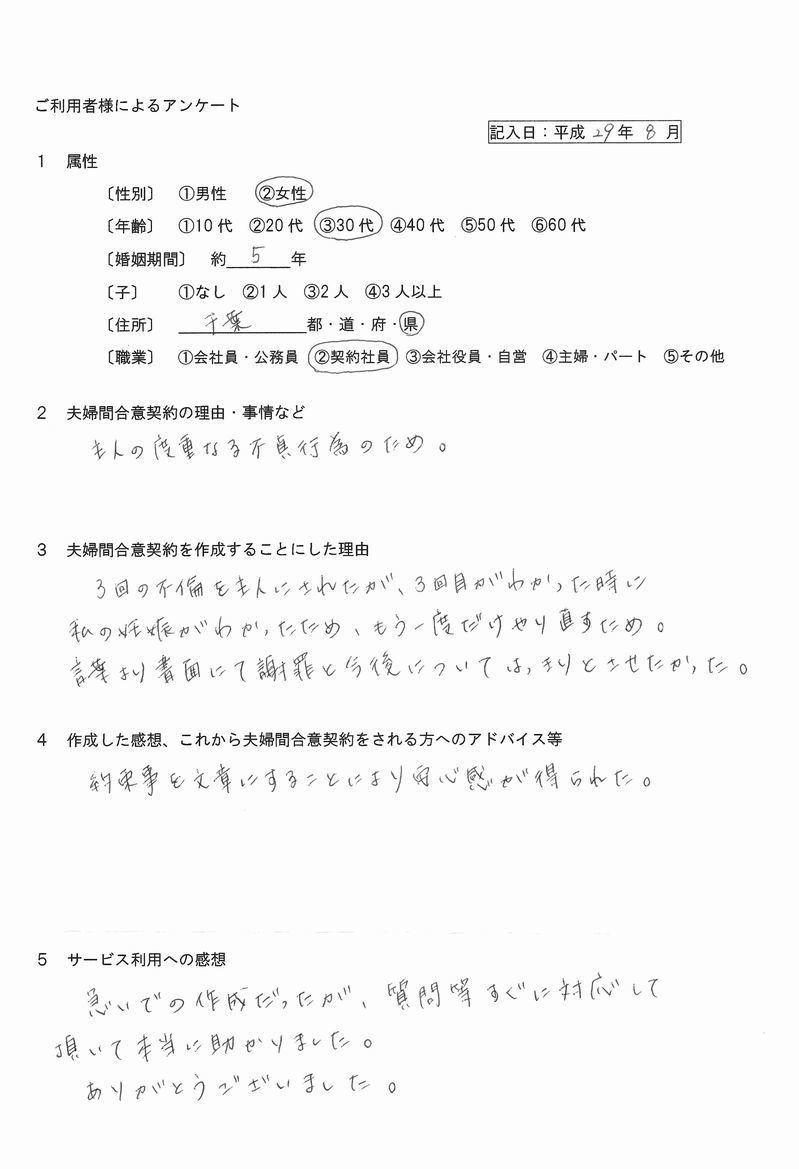 ご利用者様によるアンケート
記入日：平成 29年 8 月
1 属性
〔性別〕 ①男性 ②女性
〔年齢〕 ①10代 ②20代 ③30代 ④40代 ⑤50代 ⑥60代
〔婚姻期間〕 約 5 年
〔子〕 ①なし ②1人 ③2人 ④3人以上
〔住所〕 千葉 都・道・府・県
〔職業〕 ①会社員・公務員 ②契約社員 ③会社役員・自営 ④主婦・パート ⑤その他
2 夫婦間合意契約の理由・事情など
主人の度重なる不貞行為のため。
3 夫婦間合意契約を作成することにした理由
3回の不倫を主人にされたが、3回目がわかった時に
私の妊娠がわかったため、もう一度だけやり直すため。
言葉より書面にて謝罪と今後についてはっきりとさせたかった。
4 作成した感想、これから夫婦間合意契約をされる方へのアドバイス等
約束事を文章にすることにより安心感が得られた。
5 サービス利用への感想
急いでの作成だったが、質問等すぐに対応して
頂いて本当に助かりました。
ありがとうございました。